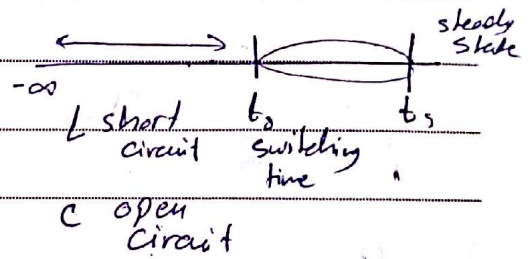 steady
state
-∞
t₀
t₅
L short
circuit
switching
time
C open
circuit